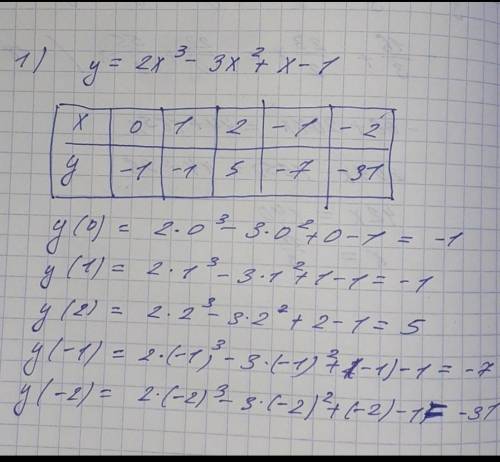 1) y = 2x³ - 3x² + x - 1
x 0 1 2 -1 -2
y -1 -1 5 -7 -31
y(0) = 2·0³ - 3·0² + 0 - 1 = -1
y(1) = 2·1³ - 3·1² + 1 - 1 = -1
y(2) = 2·2³ - 3·2² + 2 - 1 = 5
y(-1) = 2·(-1)³ - 3·(-1)² + (-1) - 1 = -7
y(-2) = 2·(-2)³ - 3·(-2)² + (-2) - 1 = -31